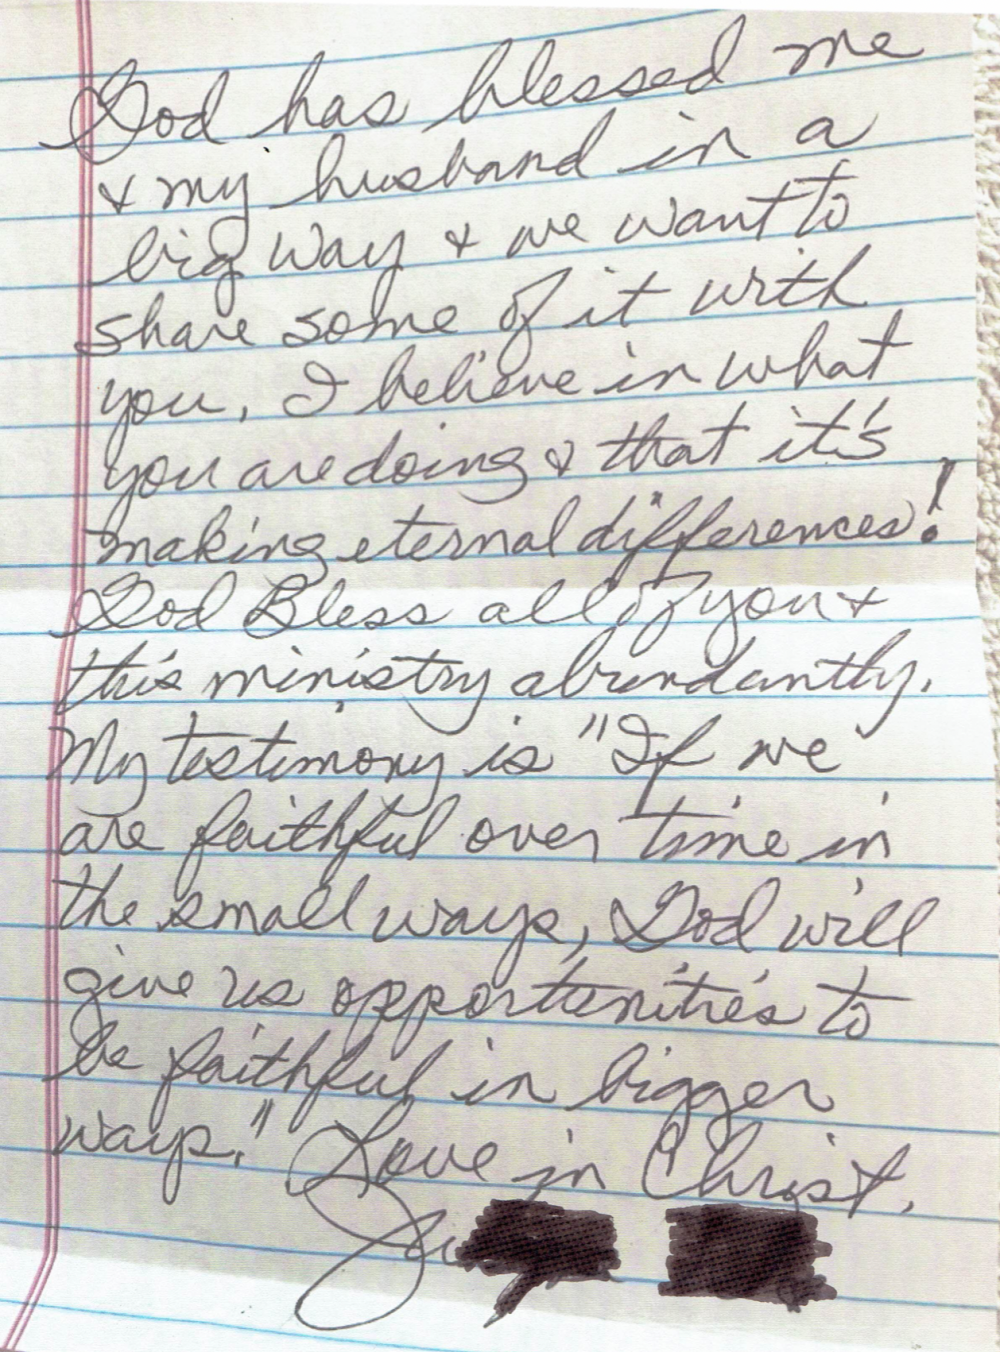 God has blessed me
& my husband in a
big way & we want to
share some of it with
you. I believe in what
you are doing & that it's
making eternal differences!
God Bless all of you &
this ministry abundantly.
My testimony is "If we
are faithful over time in
the small ways, God will
give us opportunities to
be faithful in bigger
ways." Love in Christ,